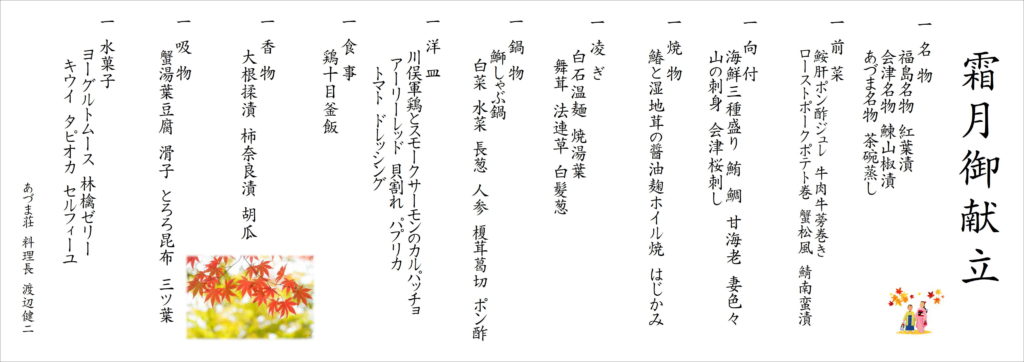 霜月御献立
一 名物
福島名物 紅葉漬
会津名物 鰊山椒漬
あづま名物 茶碗蒸し
一 前菜
鮟肝ポン酢ジュレ 牛肉牛蒡巻き
ローストポークポテト巻 蟹松風 鯖南蛮漬
一 向付
海鮮三種盛り 鮪 鯛 甘海老 妻色々
山の刺身 会津桜刺し
一 焼物
鰆と湿地茸の醤油麹ホイル焼 はじかみ
一 凌ぎ
白石温麺 焼湯葉
舞茸 法連草 白髪葱
一 鍋物
鰤しゃぶ鍋
白菜 水菜 長葱 人参 榎茸葛切 ポン酢
一 洋皿
川俣軍鶏とスモークサーモンのカルパッチョ
アーリーレッド 貝割れ パプリカ
トマト ドレッシング
一 食事
鶏十目釜飯
一 香物
大根揉漬 柿奈良漬 胡瓜
一 吸物
蟹湯葉豆腐 滑子 とろろ昆布 三ツ葉
一 水菓子
ヨーグルトムース 林檎ゼリー
キウイ タピオカ セルフィーユ
あづま荘 料理長 渡辺健二